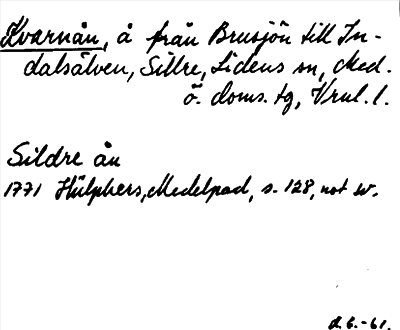 Kvarnån, å från Brusjön till In-
dalsälven, Sillre, Lidens sn, Med.
ö. doms. tg, Vrnl. l.
Sildre ån
1771 Hülphers, Medelpad, s. 128, not w.
d. 6. -61.